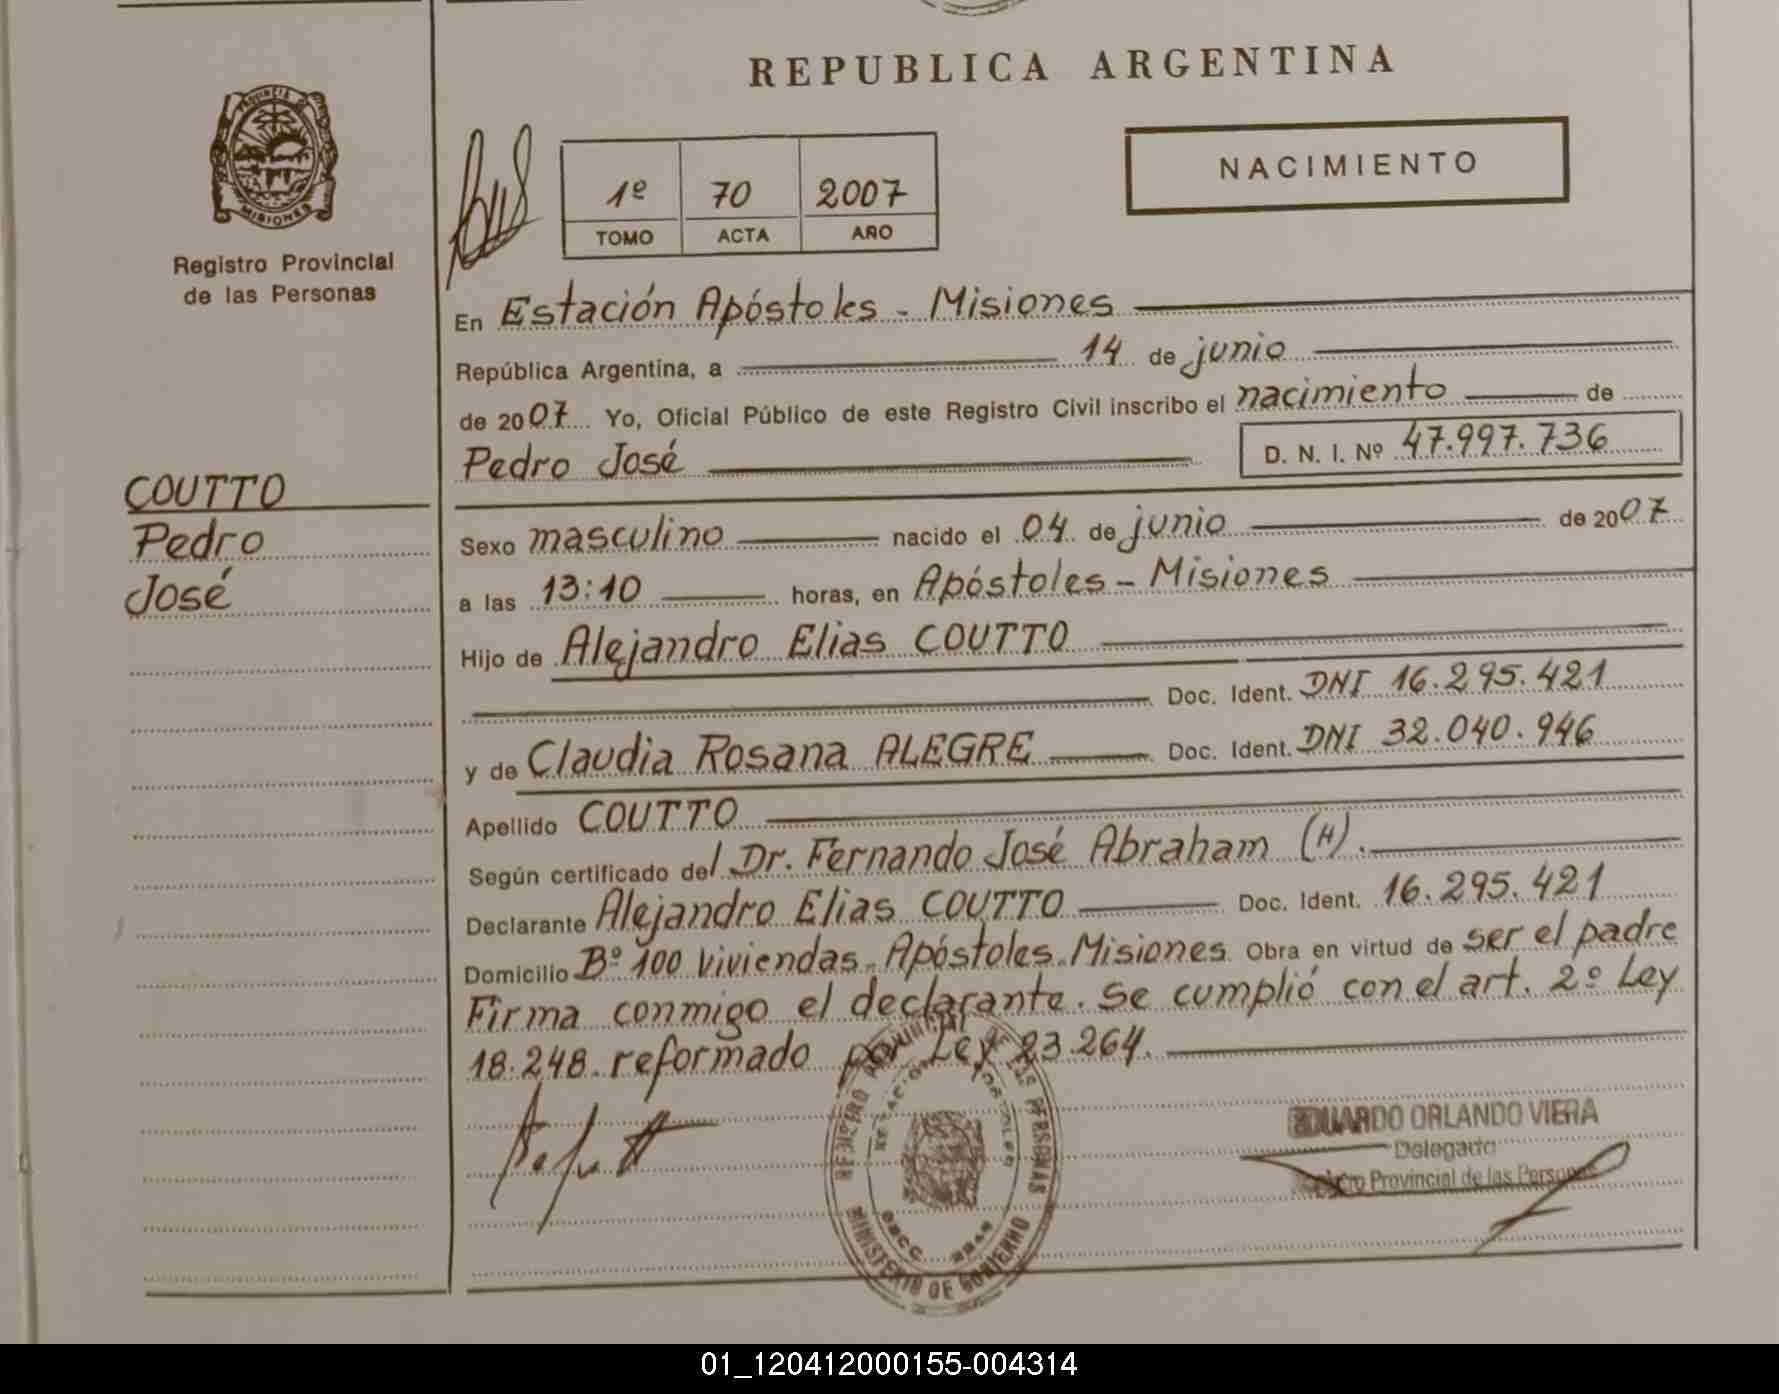 REPUBLICA ARGENTINA
PROVINCIA DE
MISIONES
Registro Provincial
de las Personas
1º 70 2007
TOMO ACTA AÑO
NACIMIENTO
En Estación Apóstoles - Misiones
República Argentina, a 14 de junio
de 2007 Yo, Oficial Público de este Registro Civil inscribo el nacimiento de
Pedro José D. N. I. Nº 47.997.736
COUTTO
Pedro
José
Sexo masculino nacido el 04 de junio de 2007
a las 13:10 horas, en Apóstoles - Misiones
Hijo de Alejandro Elias COUTTO
Doc. Ident. DNI 16.295.421
y de Claudia Rosana ALEGRE Doc. Ident. DNI 32.040.946
Apellido COUTTO
Según certificado del Dr. Fernando José Abraham (H).
Declarante Alejandro Elias COUTTO Doc. Ident. 16.295.421
Domicilio Bº 100 viviendas - Apóstoles - Misiones Obra en virtud de ser el padre
Firma conmigo el declarante. Se cumplió con el art. 2º Ley
18.248 reformado por Ley 23.264.
REGISTRO PROVINCIAL DE LAS PERSONAS
MINISTERIO DE GOBIERNO
EDUARDO ORLANDO VIERA
Delegado
Registro Provincial de las Personas
01_120412000155-004314